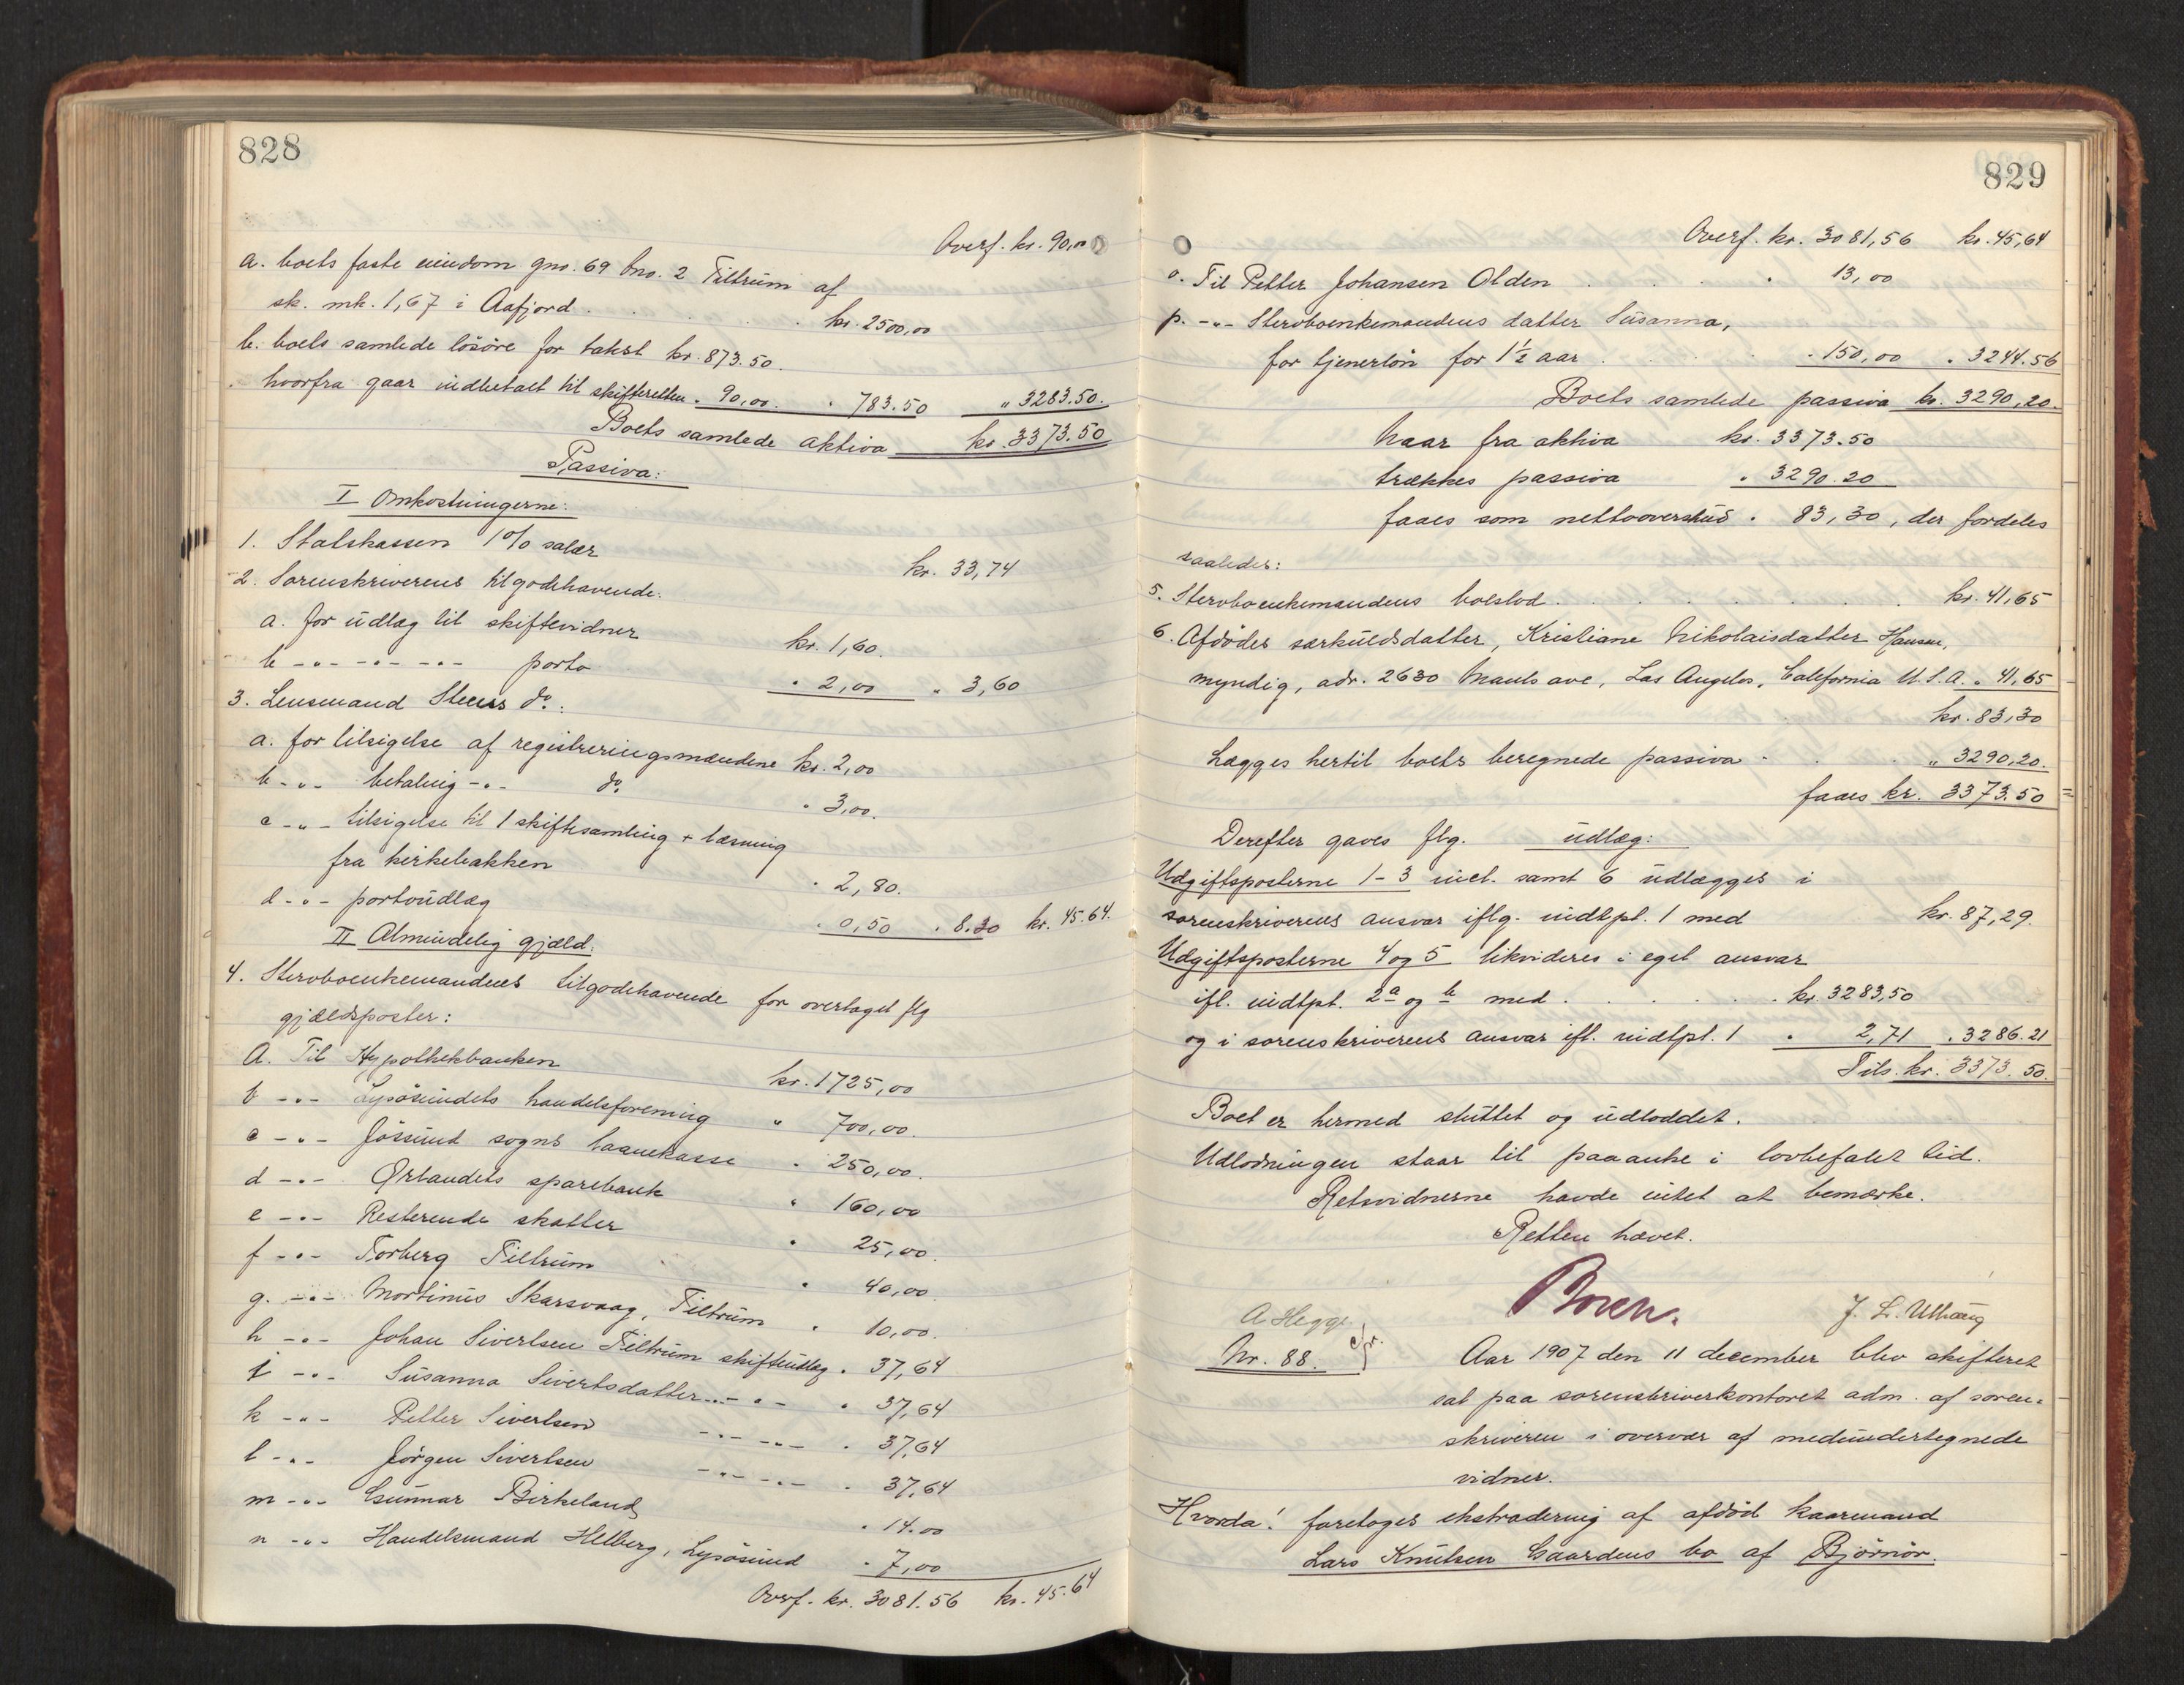 828
Overf. kr. 90,00
a. boets faste eiendom gno. 69 bno. 2 Tiltrum af
sk. mk. 1,67 i Aafjord . . . . . kr. 2500,00
b. boets samlede lösöre for takst kr. 873.50.
hvorfra gaar indbetalt til skifteretten " 90,00. " 783.50 " 3283.50.
Boets samlede aktiva kr. 3373.50
Passiva:
I Omkostningerne:
1. Statskassen 1% salær kr. 33,74
2. Sorenskriverens tilgodehavende:
a. for udlæg til skiftevidner kr. 1,60.
b -"- -"- -"- porto " 2,00 " 3,60
3. Lensmand Steens do.:
a. for tilsigelse af registreringsmændene kr. 2,00
b -"- betaling -"- do. " 3,00.
c -"- tilsigelse til 1 skiftesamling + læsning
fra kirkebakken " 2,80.
d -"- portoudlæg " 0,50 " 8.30 kr. 45.64.
II Almindelig gjæld.
4. Stervboenkemandens tilgodehavende for overtaget flg
gjældsposter:
a. Til Hypothekbanken kr. 1725,00
b -"- Lysösundets handelsforening " 700,00.
c -"- Jössund sogns laanekasse " 250,00.
d -"- Ørlandets sparebank " 160,00
e -"- Resterende skatter " 25,00.
f -"- Torberg Tiltrum " 40,00.
g. -"- Mortinus Skarsvaag, Tiltrum " 10,00.
h -"- Johan Sivertsen Tiltrum skifteudlæg " 37,64
i -"- Susanna Sivertsdatter -"- -"- " 37,64
k -"- Petter Sivertsen -"- -"- " 37,64
l -"- Jörgen Sivertsen -"- -"- " 37,64
m -"- Gunnar Birkeland " 14.00
n -"- Handelsmand Helberg, Lysösund " 7,00
Overf. kr. 3081.56 kr. 45.64
829
Overf. kr. 3081,56 kr. 45,64
o. Til Petter Johansen Olden . . . " 13,00
p. -"- Stervboenkemandens datter Susanna,
for tjenerlön for 1½ aar . . . " 150,00 " 3244.56
Boets samlede passiva kr. 3290,20.
Naar fra aktiva kr. 3373.50
trækkes passiva " 3290.20
faaes som nettooverskud " 83,30, der fordeles
saaledes:
5. Stervboenkemandens boeslod . . . . . kr. 41,65
6. Afdödes særkuldsdatter, Kristiane Nikolaisdatter Hansen,
myndig, adr. 2630 Mauls ave, Las Angelos, California U.S.A. " 41,65
kr. 83,30
Lægges hertil boets beregnede passiva . . . " 3290,20.
faaes kr. 3373.50
Derefter gaves flg. udlæg:
Udgiftsposterne 1-3 incl. samt 6 udlægges i
sorenskriverens ansvar iflg. indtpt. 1 med kr. 87,29.
Udgiftsposterne 4 og 5 likvideres i eget ansvar
ifl. indtpt. 2a og b med . . . . . kr. 3283,50
og i sorenskriverens ansvar ifl. indtpt. 1 " 2,71 " 3286.21
Tils. kr. 3373.50.
Boet er hermed sluttet og udloddet.
Udlodningen staar til paaanke i lovbefalet tid.
Retsvidnerne havde intet at bemærke.
Retten hævet.
Boren.
A Hegge
J. L. Uthaug
Nr. 88.
Aar 1907 den 11 december blev skifteret
sat paa sorenskriverkontoret adm. af soren-
skriveren i overvær af medundertegnede
vidner.
Hvorda! foretoges ekstradering af afdöd kaarmand
Lars Knutsen Gaardens bo af Björnör.